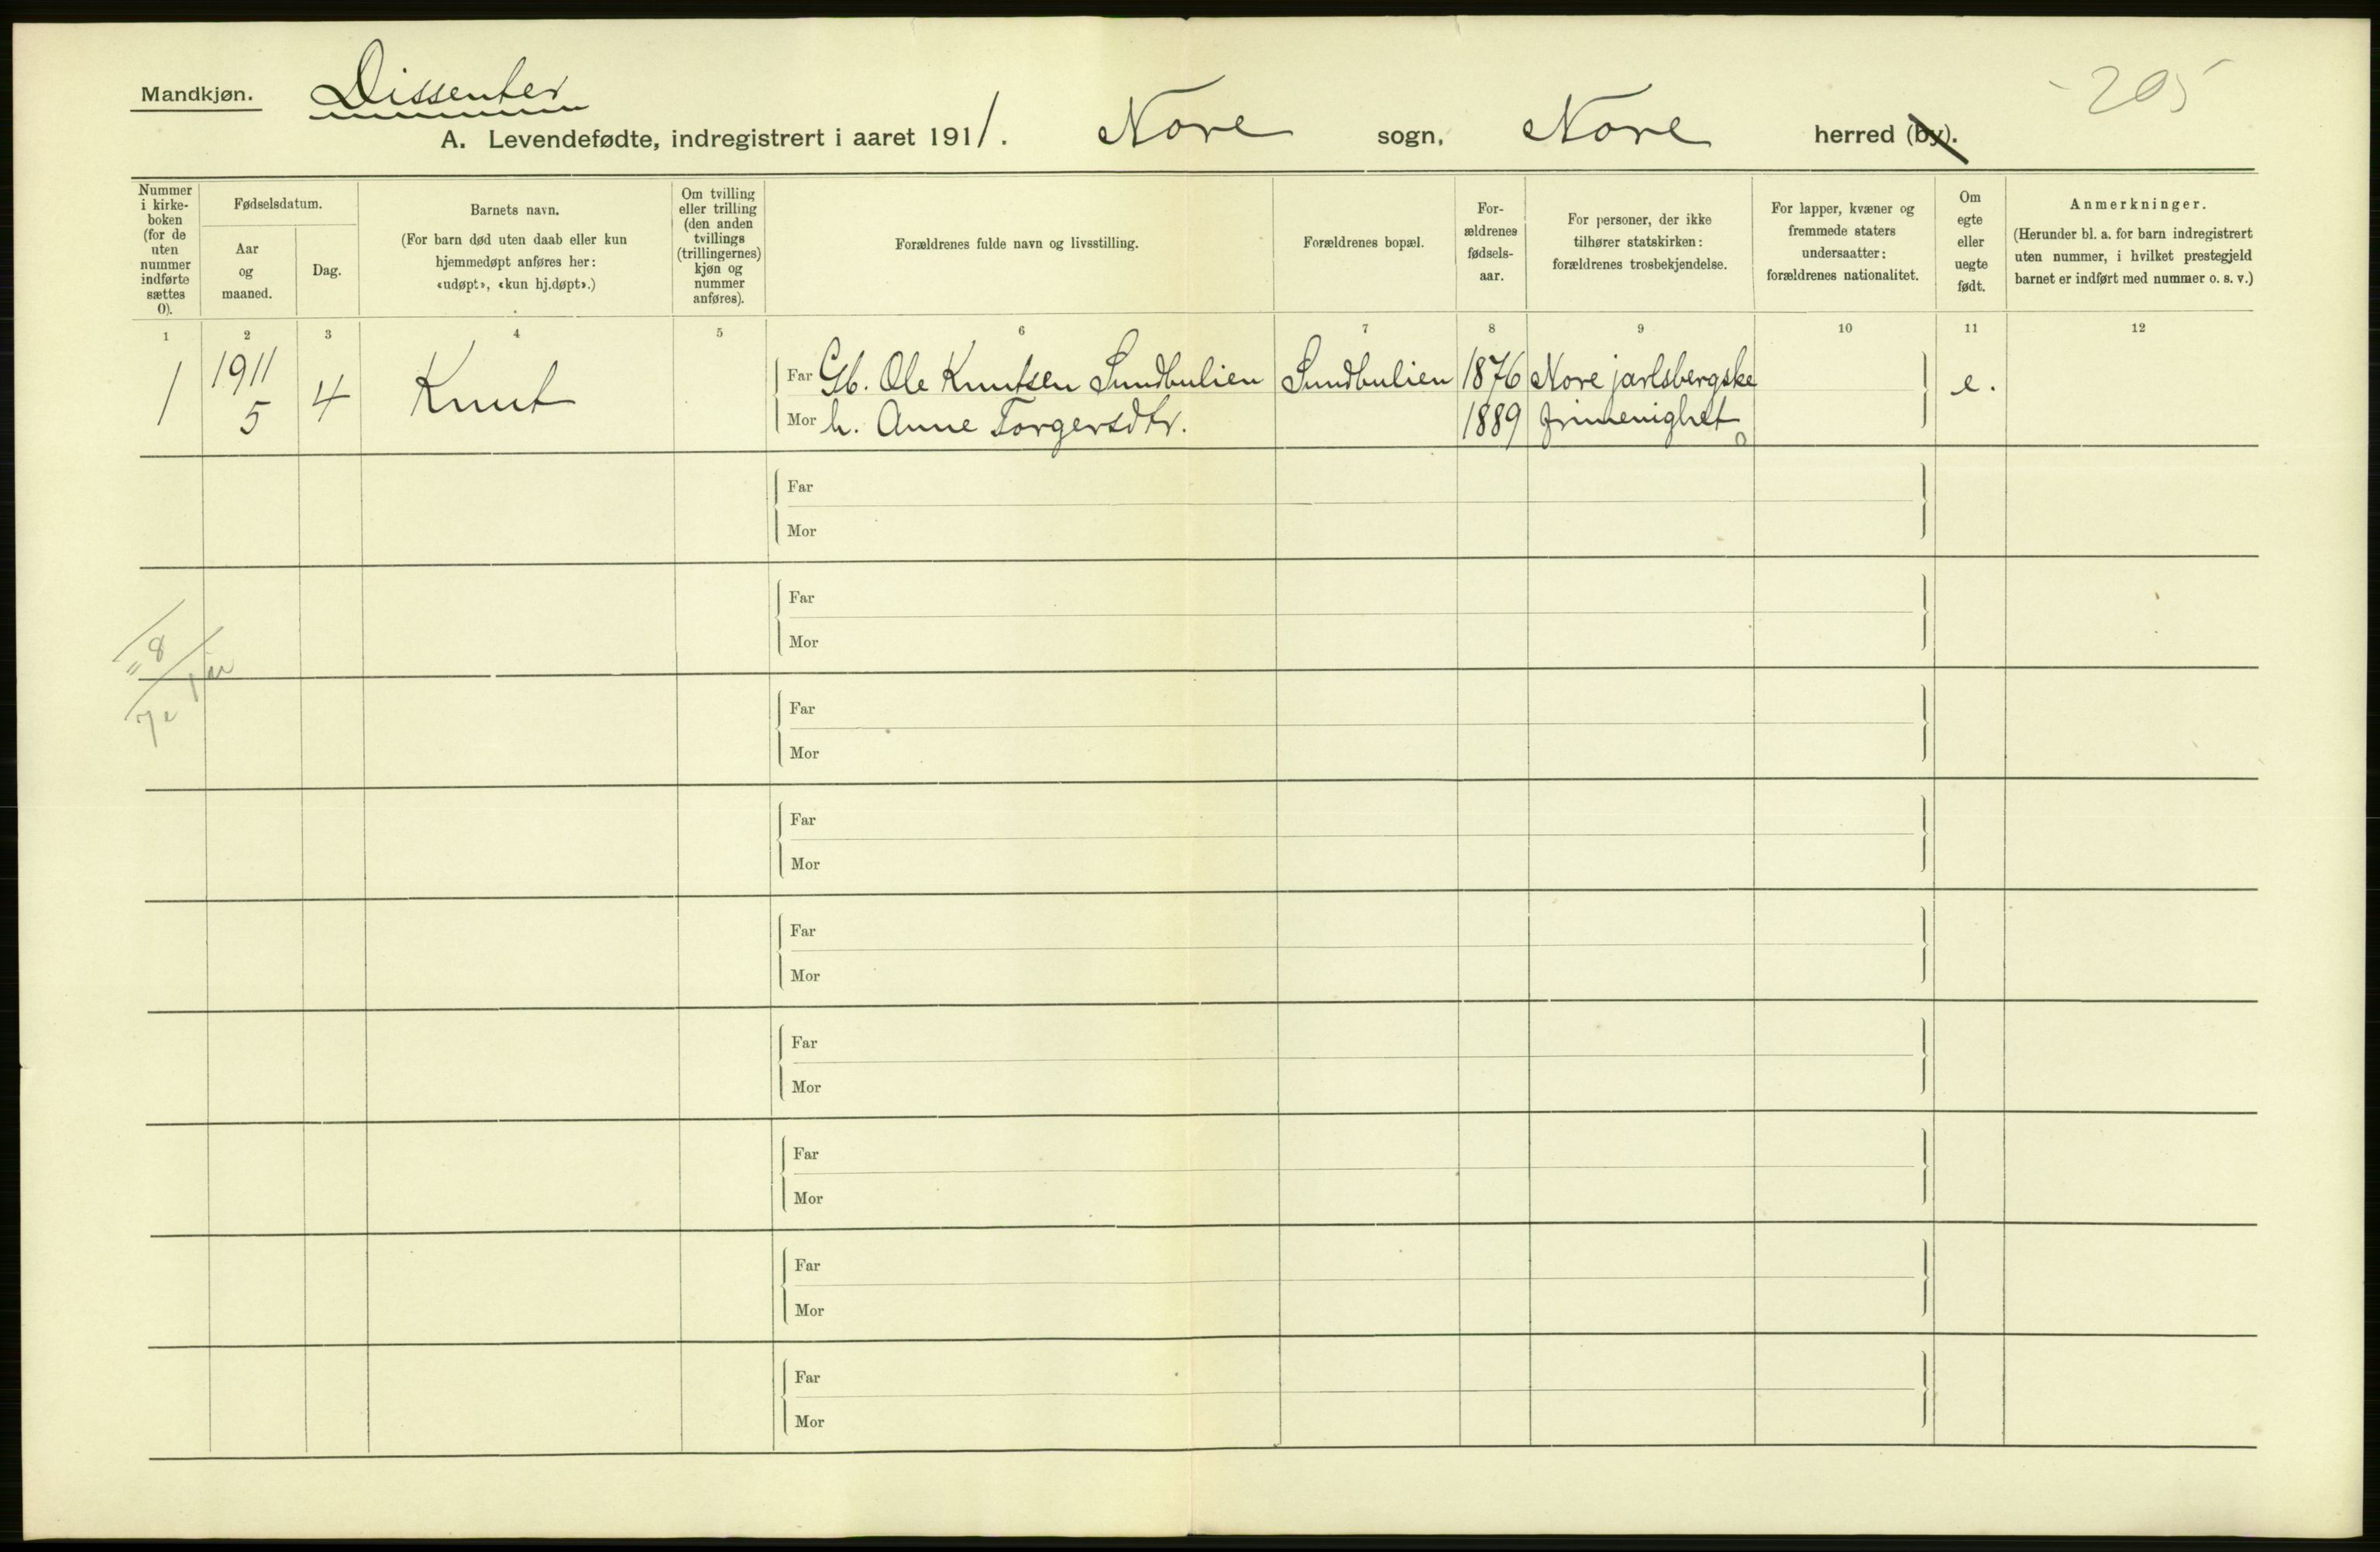 Mandkjøn.
Dissenter
205
A. Levendefødte, indregistrert i aaret 1911. Nore sogn, Nore herred (by).
Nummer
i kirke-
boken
(for de
uten
nummer
indførte
sættes
0).
Fødselsdatum.
Aar
og
maaned.
Dag.
Barnets navn.
(For barn død uten daab eller kun
hjemmedøpt anføres her:
«udøpt», «kun hj.døpt».)
Om tvilling
eller trilling
(den anden
tvillings
(trillingernes)
kjøn og
nummer
anføres).
Forældrenes fulde navn og livsstilling.
Forældrenes bopæl.
For-
ældrenes
fødsels-
aar.
For personer, der ikke
tilhører statskirken:
forældrenes trosbekjendelse.
For lapper, kvæner og
fremmede staters
undersaatter:
forældrenes nationalitet.
Om
egte
eller
uegte
født.
Anmerkninger.
(Herunder bl. a. for barn indregistrert
uten nummer, i hvilket prestegjeld
barnet er indført med nummer o. s. v.)
1 2 3 4 5 6 7 8 9 10 11 12
1 1911 4 Knut Far Gb. Ole Knutsen Sundbulien Sundbulien 1876 Nore jarlsbergske e.
5 Mor h. Anne Torgersdtr. 1889 frimenighet
Far
Mor
Far
Mor
8
Far
Mor
Far
Mor
Far
Mor
Far
Mor
Far
Mor
Far
Mor
Far
Mor